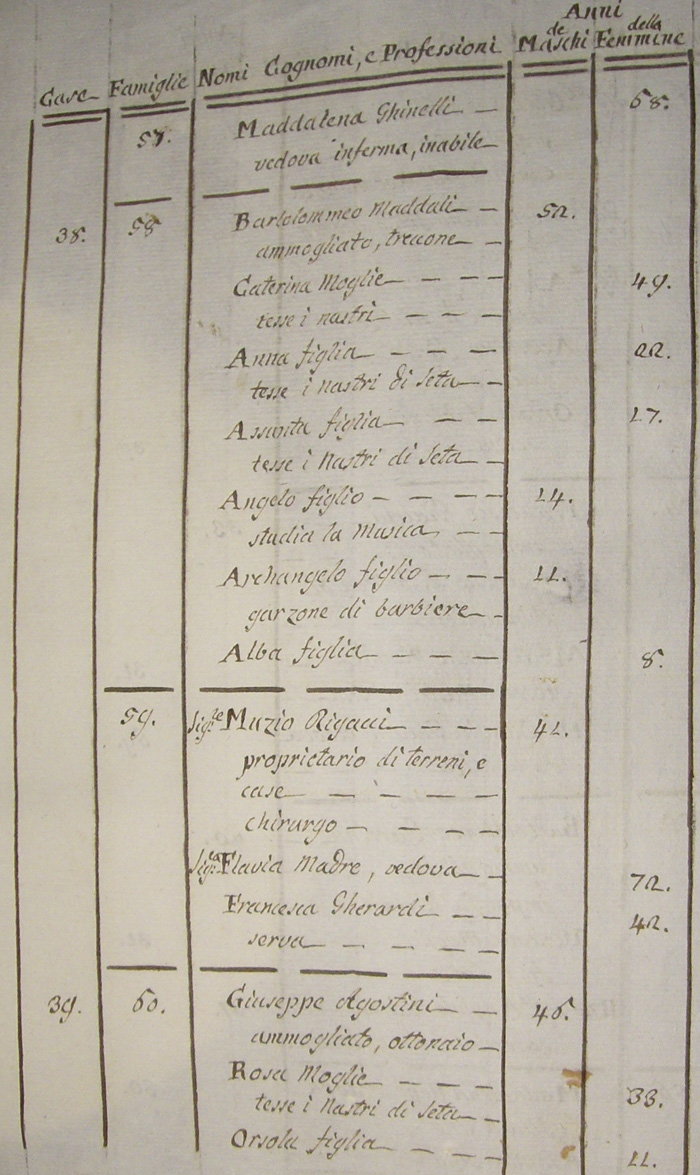 Anni
Case Famiglie Nomi Cognomi, e Professioni de Maschi della Femmine
57. Maddalena Ghinelli 68.
vedova inferma, inabile
38. 58 Bartolommeo Maddali 52.
ammogliato, treccone
Caterina Moglie 49.
tesse i nastri
Anna figlia 22.
tesse i nastri di seta
Assunta figlia 17.
tesse i nastri di seta
Angelo figlio 14.
studia la Musica
Archangelo figlio 11.
garzone di barbiere
Alba figlia 8.
59. Sig.re Muzio Rigacci 41.
proprietario di terreni, e
case
chirurgo
Sig.ra Flavia Madre, vedova 72.
Francesca Gherardi 42.
serva
39. 60. Giuseppe Agostini 46.
ammogliato, ottonaio
Rosa Moglie
tesse i nastri di seta 33.
Orsola figlia 11.